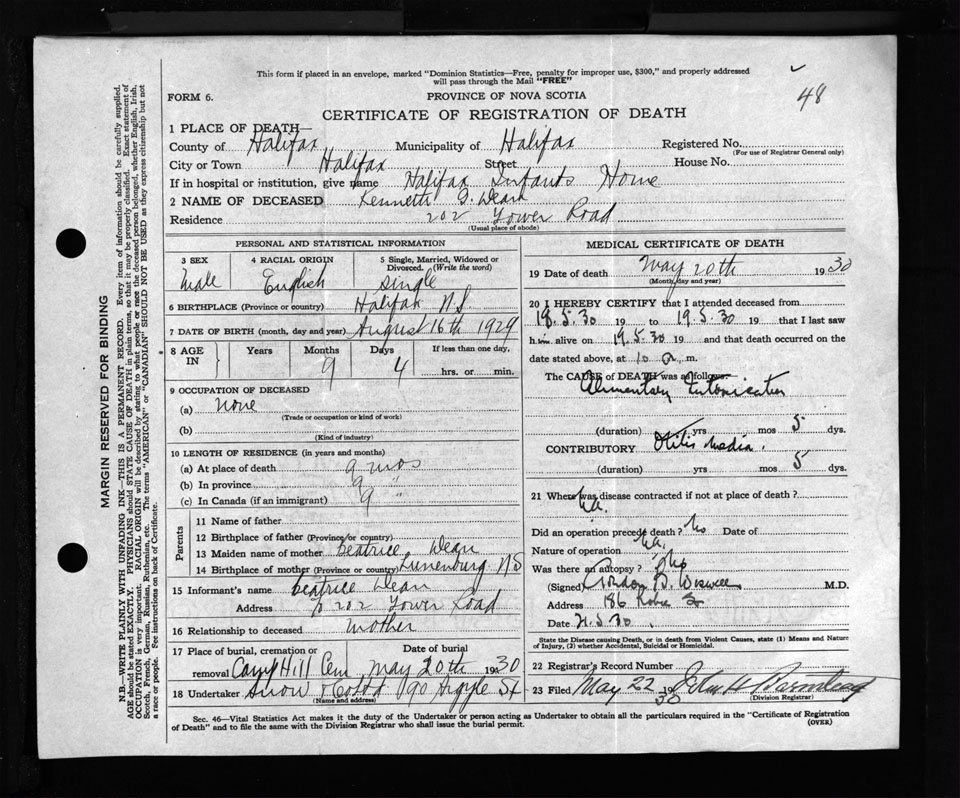 This form if placed in an envelope, marked "Dominion Statistics—Free, penalty for improper use, $300," and properly addressed
will pass through the Mail "FREE"
48
FORM 6.
PROVINCE OF NOVA SCOTIA
CERTIFICATE OF REGISTRATION OF DEATH
1 PLACE OF DEATH—
County of Halifax Municipality of Halifax Registered No.
(For use of Registrar General only)
City or Town Halifax Street House No.
If in hospital or institution, give name Halifax Infants Home
2 NAME OF DECEASED Kenneth G. Dean
Residence 202 Tower Road
(Usual place of abode)
PERSONAL AND STATISTICAL INFORMATION
3 SEX 4 RACIAL ORIGIN 5 Single, Married, Widowed or
Divorced. (Write the word)
Male English Single
6 BIRTHPLACE (Province or country) Halifax N.S
7 DATE OF BIRTH (month, day and year) August 16th 1929
8 AGE IN Years Months Days If less than one day,
9 4 hrs. or min.
9 OCCUPATION OF DECEASED
(a) none
(Trade or occupation or kind of work)
(b)
(Kind of industry)
10 LENGTH OF RESIDENCE (in years and months)
(a) At place of death 9 mos
(b) In province 9 "
(c) In Canada (if an immigrant) 9
Parents
11 Name of father
12 Birthplace of father (Province or country)
13 Maiden name of mother Beatrice Dean
14 Birthplace of mother (Province or country) Lunenburg NS
15 Informant's name Beatrice Dean
Address 202 Tower Road
16 Relationship to deceased mother
17 Place of burial, cremation or Date of burial
removal Camp Hill Cem May 20th 1930
18 Undertaker Snow & Co Ltd 90 Argyle St
(Name and address)
MEDICAL CERTIFICATE OF DEATH
19 Date of death May 20th 1930
(Month, day and year)
20 I HEREBY CERTIFY that I attended deceased from
18.5.30 19 to 19.5.30 19 that I last saw
h im alive on 19.5.30 19 and that death occurred on the
date stated above, at 10 a. m.
The CAUSE of DEATH was as follows:
Alimentary Intoxication
(duration) yrs mos 5 dys.
CONTRIBUTORY Otitis Media.
(duration) yrs mos 5 dys.
21 Where was disease contracted if not at place of death?
Did an operation precede death? No Date of
Nature of operation
Was there an autopsy? No
(Signed) Gordon B. Wiswell M.D.
Address 186 Robie St
Date 21.5.30.
State the Disease causing Death, or in death from Violent Causes, state (1) Means and Nature
of Injury, (2) whether Accidental, Suicidal or Homicidal.
22 Registrar's Record Number
23 Filed May 22 1930
(Division Registrar)
Sec. 46—Vital Statistics Act makes it the duty of the Undertaker or person acting as Undertaker to obtain all the particulars required in the "Certificate of Registration
of Death" and to file the same with the Division Registrar who shall issue the burial permit.
(OVER)
MARGIN RESERVED FOR BINDING
N.B.—WRITE PLAINLY WITH UNFADING INK—THIS IS A PERMANENT RECORD. Every item of information should be carefully supplied.
AGE should be stated EXACTLY. PHYSICIANS should STATE CAUSE OF DEATH in plain terms, so that it may be properly classified. Exact statement of
OCCUPATION is very important. RACIAL ORIGIN will be described by stating to what people or race the deceased person belonged, whether English, Irish,
Scotch, French, German, Russian, Ruthenian, etc. The terms "AMERICAN" or "CANADIAN" SHOULD NOT BE USED as they express citizenship but not
a race or people. See instructions on back of Certificate.